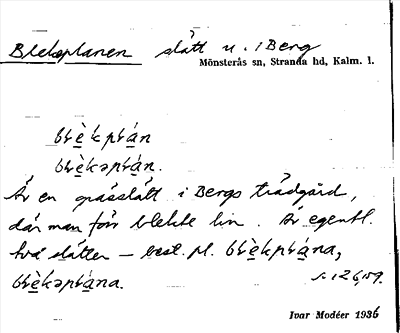 Blekeplanen slätt u. i Berg
Mönsterås sn, Stranda hd, Kalm. l.
blèkplán
blèkəplán.
Är en grässlätt i Bergs trädgård,
där man förr blekte lin. Är egentl.
två slätter – best. pl. blèkplána,
blèkəplána.
s. 126, 159.
Ivar Modéer 1936